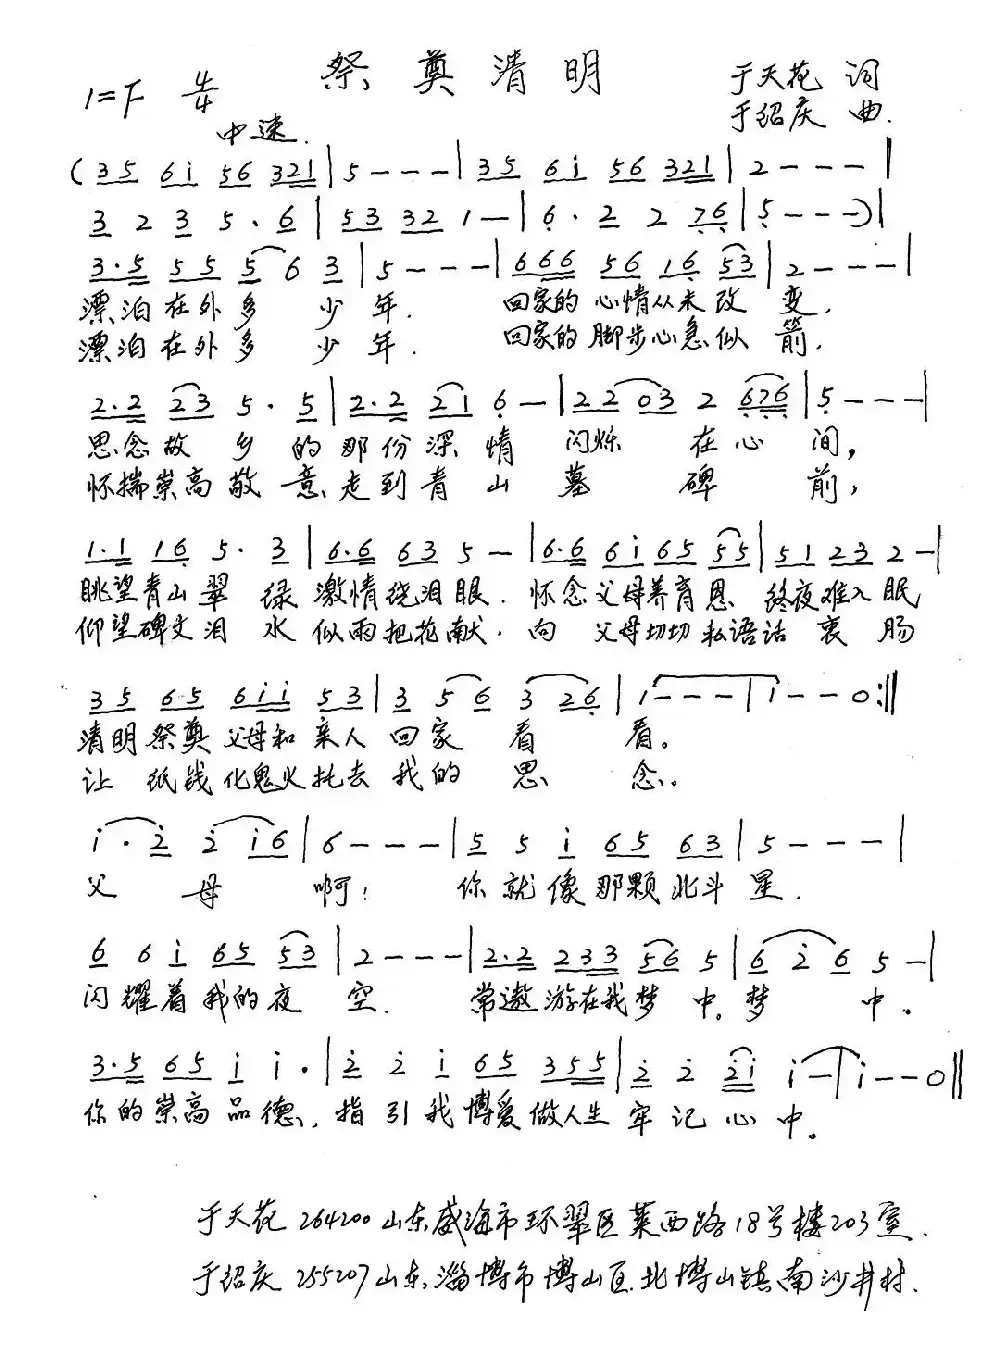 祭奠清明
于天花 词
1=F 4/4
于绍庆 曲.
中速.
(35 6i 56 321|5---|35 6i 56 321|2---|
3 2 3 5·6|53 32 1-|6·2 2 76|5---)|
3·5 55 5 6 3|5---|666 56 16 53|2---|
漂泊在外多 少 年. 回家的心情从未改 变,
漂泊在外多 少 年. 回家的脚步心急似 箭.
2·2 23 5·5|2·2 21 6-|22 03 2 676|5---|
思念故 乡 的那份深 情 闪烁 在心 间,
怀揣崇高敬 意走到青 山 墓 碑 前,
1·1 16 5·3|6·6 63 5-|6·6 6i 65 55|51 23 2-|
眺望青山翠 绿 激情绕泪眼. 怀念父母养育恩 终夜难入眠
仰望碑文泪 水 似雨把花献. 向 父母切切私语话衷肠
35 65 6ii 53|3 56 3 26|1---|i--0:‖
清明祭奠父母和亲人回家 看 看。
让 纸钱化鬼火托去我的 思 念.
i·2 2 i6|6---|5 5 i 65 63|5---|
父 母 啊! 你就像那颗北斗 星.
6 6 i 65 53|2---|2·2 233 56 5|6 2 6 5-|
闪耀着我的夜 空. 常遨游在我梦 中。梦 中.
3·5 65 i i·|2 2 i 65 355|2 2 2i i-|i--0‖
你的崇高品德, 指引我博爱做人生牢记心中。
于天花 264200山东威海市环翠区莱西路18号楼203室.
于绍庆 255207山东淄博市博山区北博山镇南沙井村.